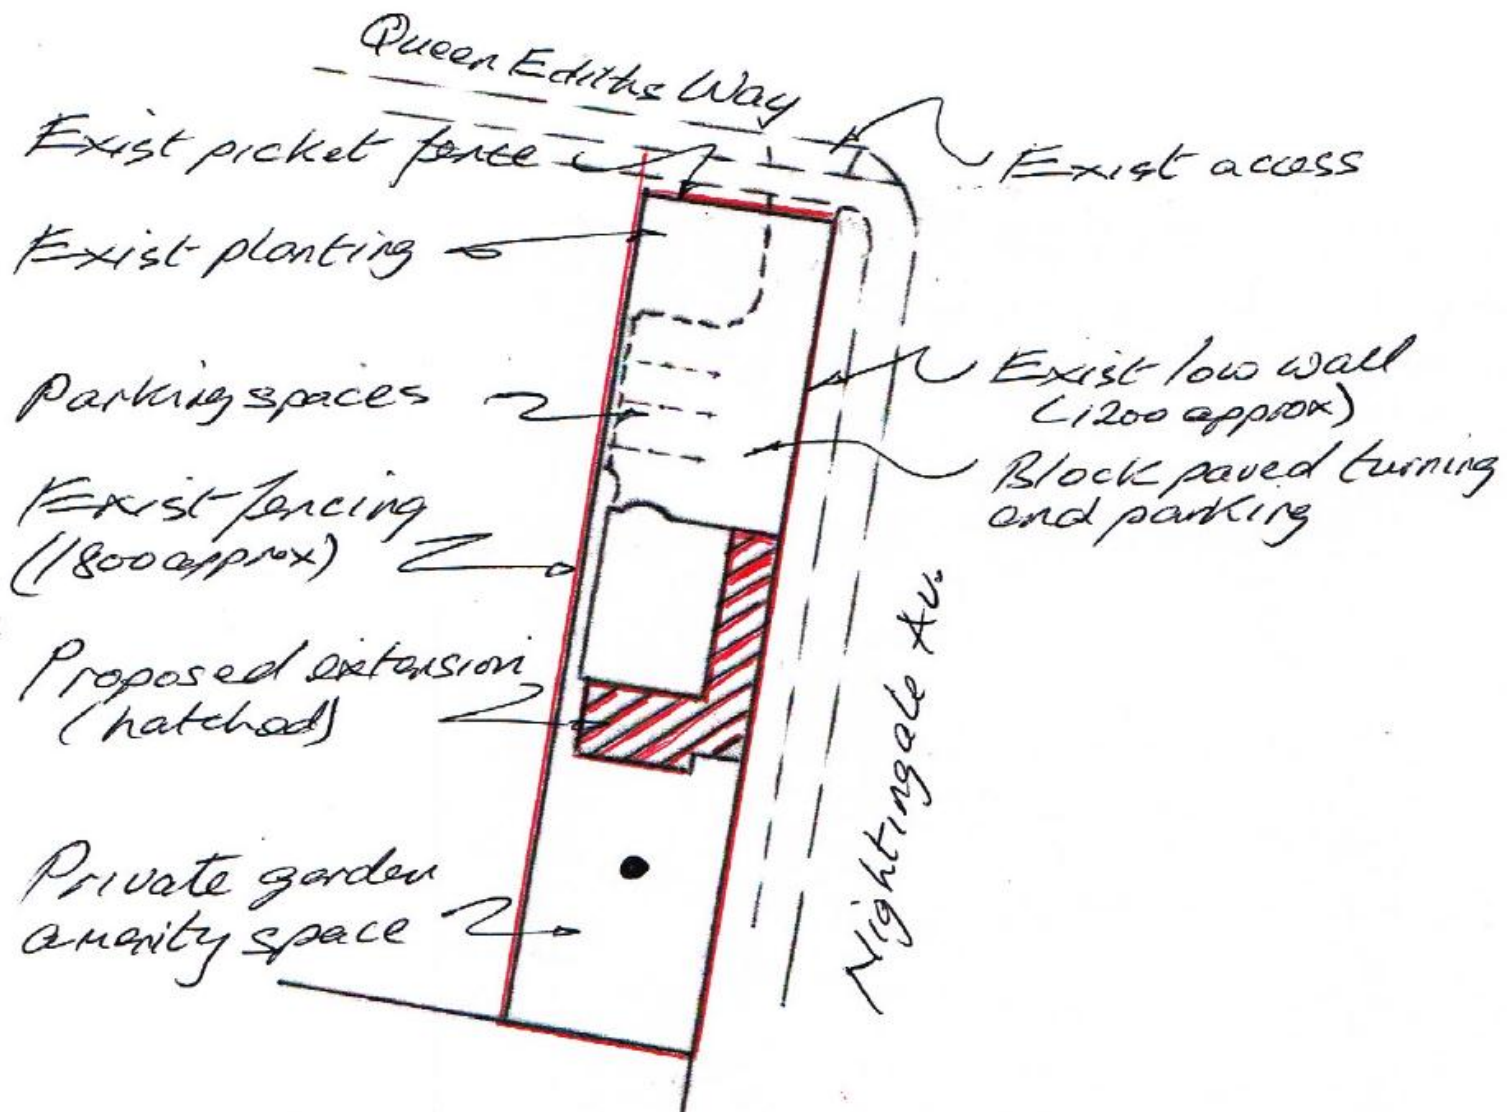 Queen Ediths Way
Exist picket fence
Exist access
Exist planting
Parking spaces
Exist low wall
(1200 approx)
Block paved turning
and parking
Exist fencing
(1800 approx)
Proposed extension
(hatched)
Nightingale Av.
Private garden
amenity space